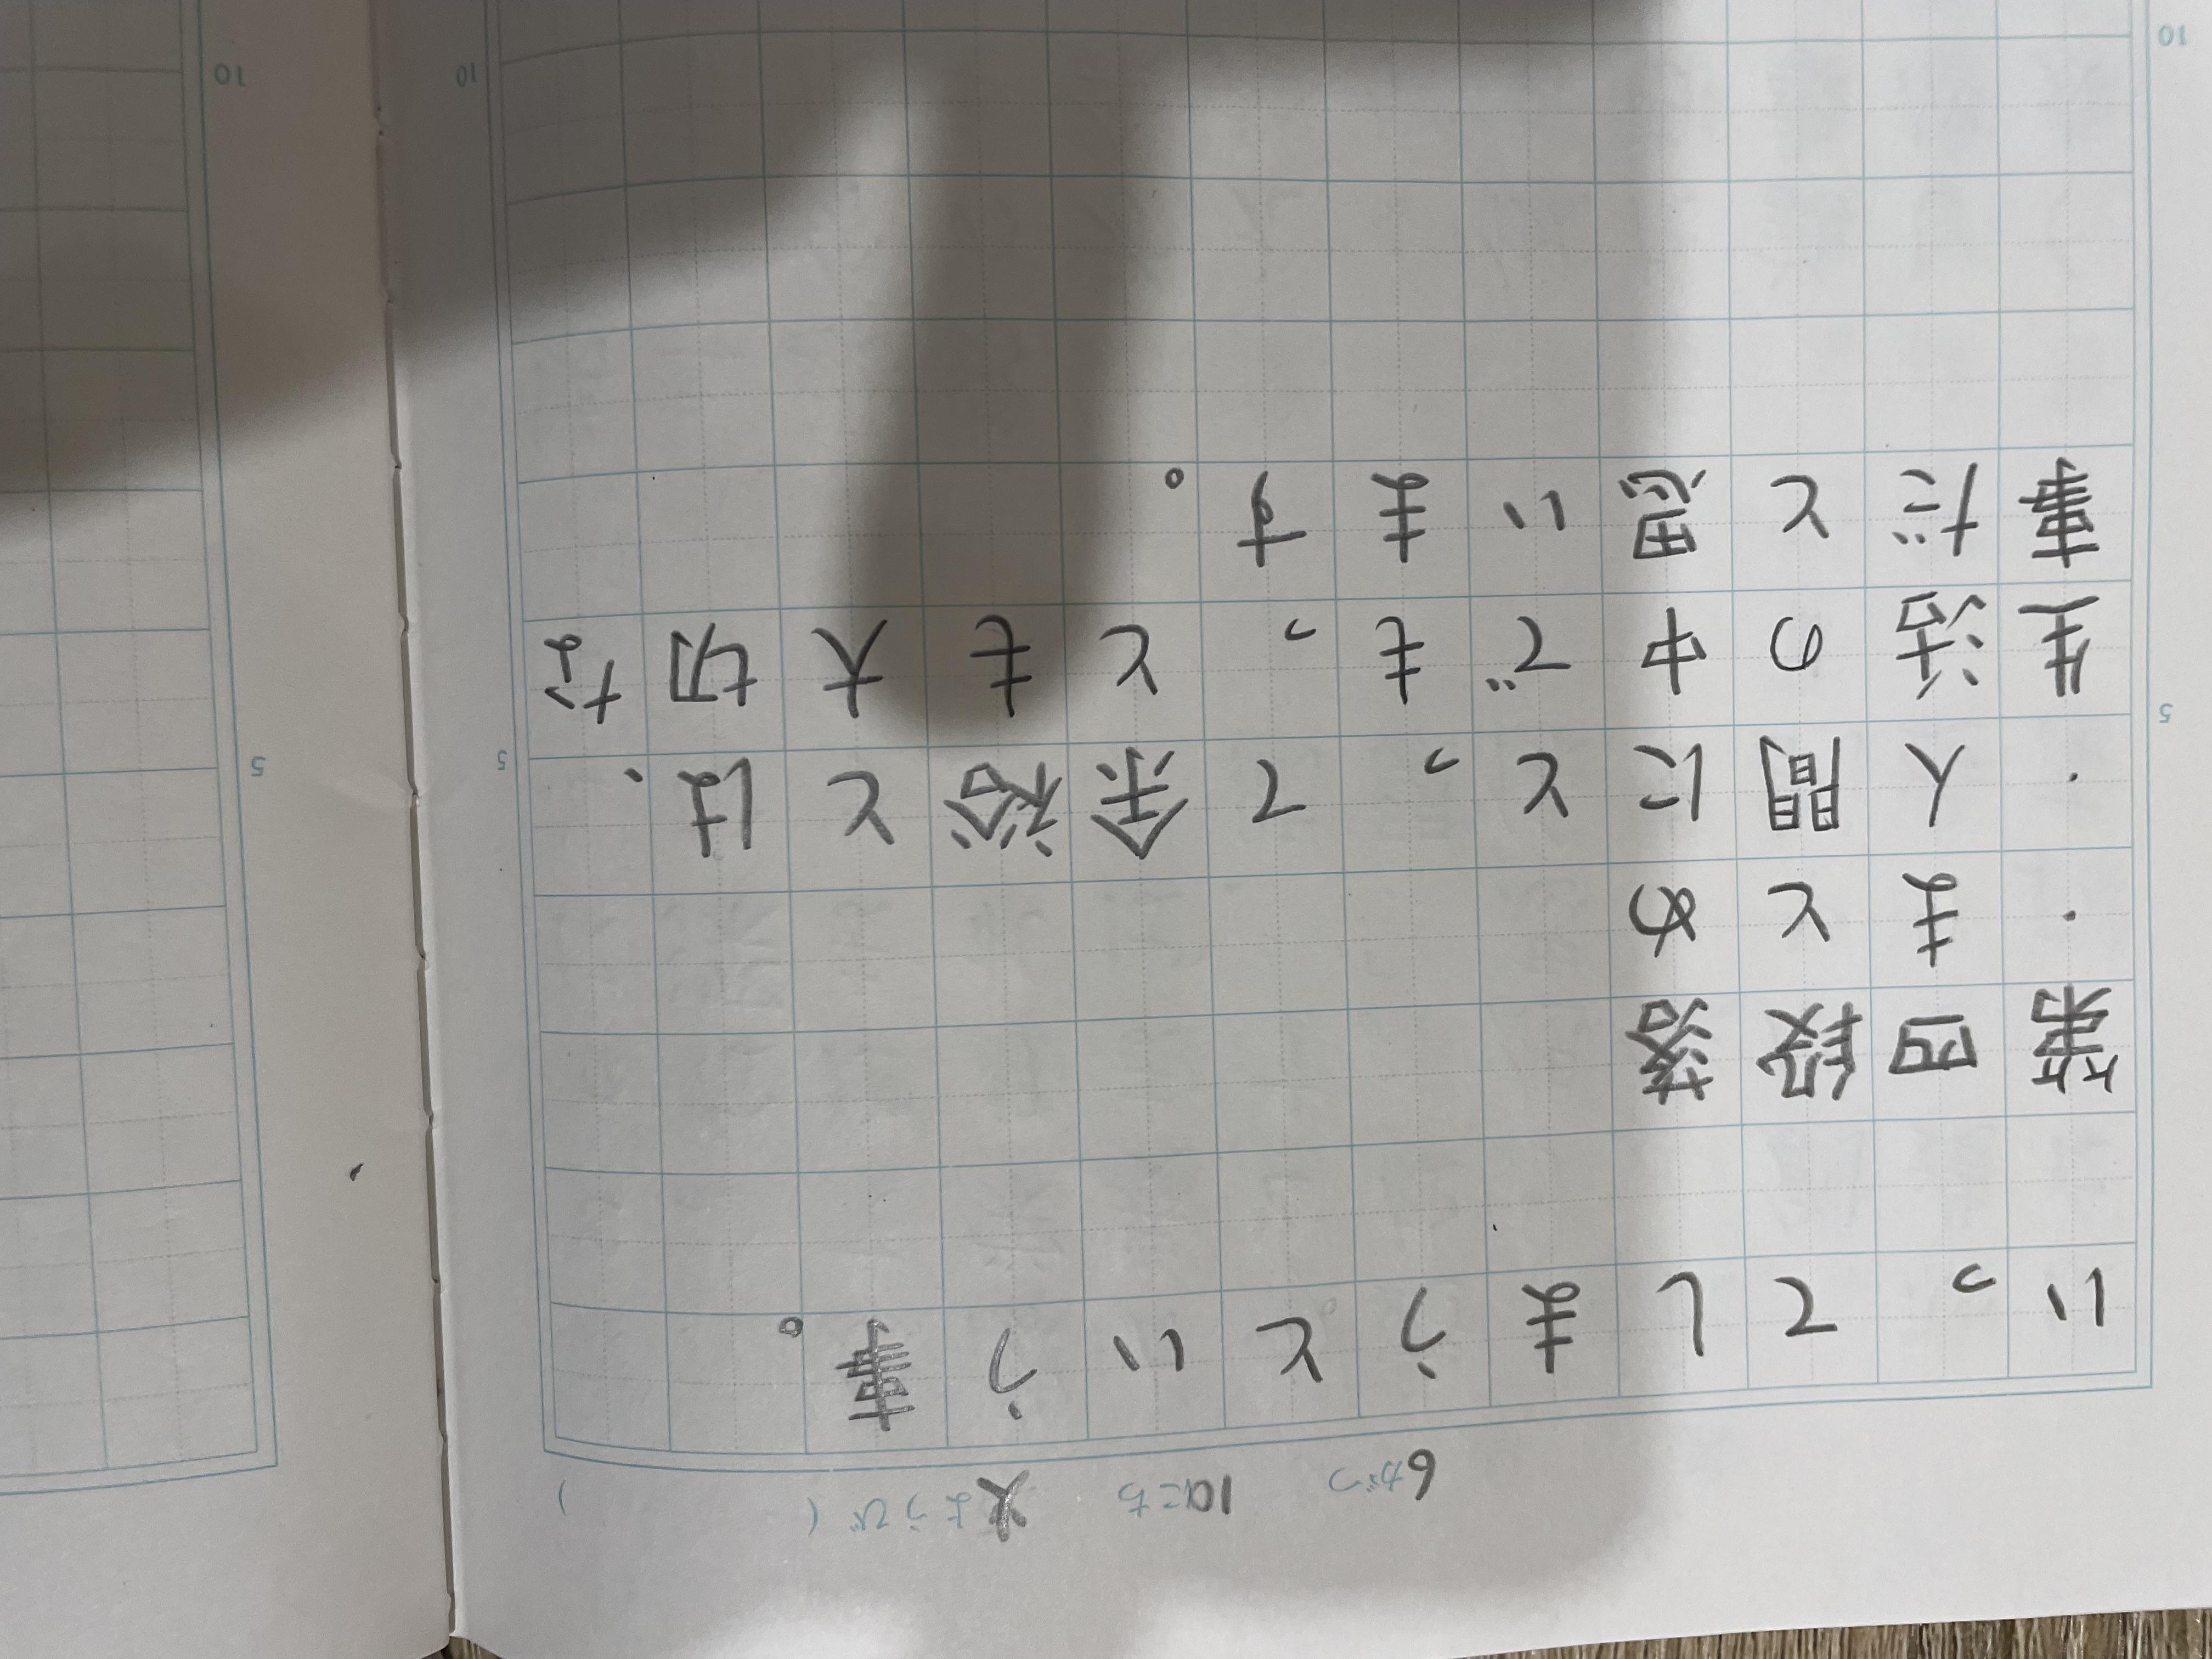 6がつ 10にち 火ようび ( )
いってしまうという事。
第四段落
・まとめ
・人間にとって余裕とは、
5
5
5
生活の中でもっとも大切な
事だと思います。
10
10
10